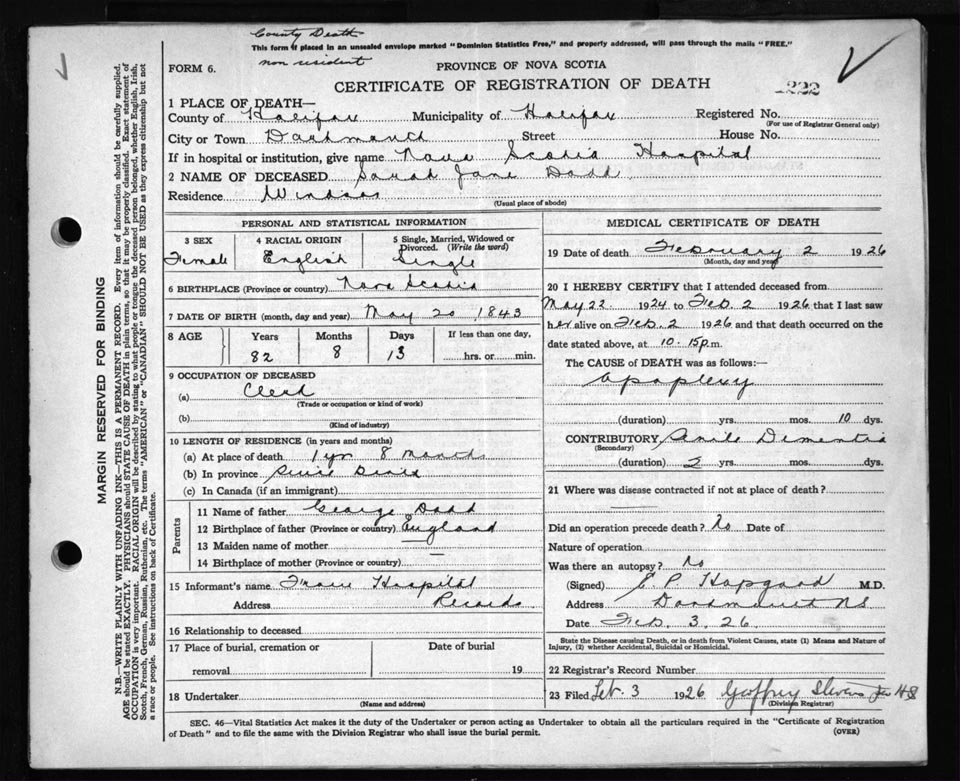 County Death
This form if placed in an unsealed envelope marked "Dominion Statistics Free," and properly addressed, will pass through the mails "FREE."
non resident
FORM 6.
PROVINCE OF NOVA SCOTIA
CERTIFICATE OF REGISTRATION OF DEATH
1222
1 PLACE OF DEATH—
County of Halifax Municipality of Halifax Registered No.
(For use of Registrar General only)
City or Town Dartmouth Street House No.
If in hospital or institution, give name Nova Scotia Hospital
2 NAME OF DECEASED Sarah Jane Dodd
Residence Windsor
(Usual place of abode)
PERSONAL AND STATISTICAL INFORMATION
3 SEX
Female
4 RACIAL ORIGIN
English
5 Single, Married, Widowed or
Divorced. (Write the word)
Single
6 BIRTHPLACE (Province or country) Nova Scotia
7 DATE OF BIRTH (month, day and year) May 20 1843
8 AGE
Years Months Days If less than one day,
82 8 13 hrs. or min.
9 OCCUPATION OF DECEASED
(a) Clerk
(Trade or occupation or kind of work)
(b)
(Kind of industry)
10 LENGTH OF RESIDENCE (in years and months)
(a) At place of death 1 yr 8 months
(b) In province Since Birth
(c) In Canada (if an immigrant)
Parents
11 Name of father George Dodd
12 Birthplace of father (Province or country) England
13 Maiden name of mother —
14 Birthplace of mother (Province or country) —
15 Informant's name From Hospital
Address Records
16 Relationship to deceased
17 Place of burial, cremation or Date of burial
removal 19
18 Undertaker
(Name and address)
MEDICAL CERTIFICATE OF DEATH
19 Date of death February 2 1926
(Month, day and year)
20 I HEREBY CERTIFY that I attended deceased from
May 22 1924 to Feb. 2 1926 that I last saw
her alive on Feb. 2 1926 and that death occurred on the
date stated above, at 10.15 p.m.
The CAUSE of DEATH was as follows:—
Apoplexy
(duration) yrs. mos. 10 dys.
CONTRIBUTORY Senile Dementia
(Secondary)
(duration) 2 yrs. mos. dys.
21 Where was disease contracted if not at place of death?
Did an operation precede death? No Date of
Nature of operation
Was there an autopsy? No
(Signed) E. P. Hopgood M.D.
Address Dartmouth NS
Date Feb. 3. 26.
State the Disease causing Death, or in death from Violent Causes, state (1) Means and Nature of
Injury, (2) whether Accidental, Suicidal or Homicidal.
22 Registrar's Record Number
23 Filed Feb. 3 1926 Geoffrey Stevens
(Division Registrar)
SEC. 46—Vital Statistics Act makes it the duty of the Undertaker or person acting as Undertaker to obtain all the particulars required in the "Certificate of Registration
of Death" and to file the same with the Division Registrar who shall issue the burial permit. (OVER)
MARGIN RESERVED FOR BINDING
N.B.—WRITE PLAINLY WITH UNFADING INK—THIS IS A PERMANENT RECORD. Every item of information should be carefully supplied.
AGE should be stated EXACTLY. PHYSICIANS should STATE CAUSE OF DEATH in plain terms, so that it may be properly classified. Exact statement of
OCCUPATION is very important. RACIAL ORIGIN will be described by stating to what people or tongue the deceased person belonged, whether English, Irish,
Scotch, French, German, Russian, Ruthenian, etc. The terms "AMERICAN" or "CANADIAN" SHOULD NOT BE USED as they express citizenship but not
a race or people. See instructions on back of Certificate.